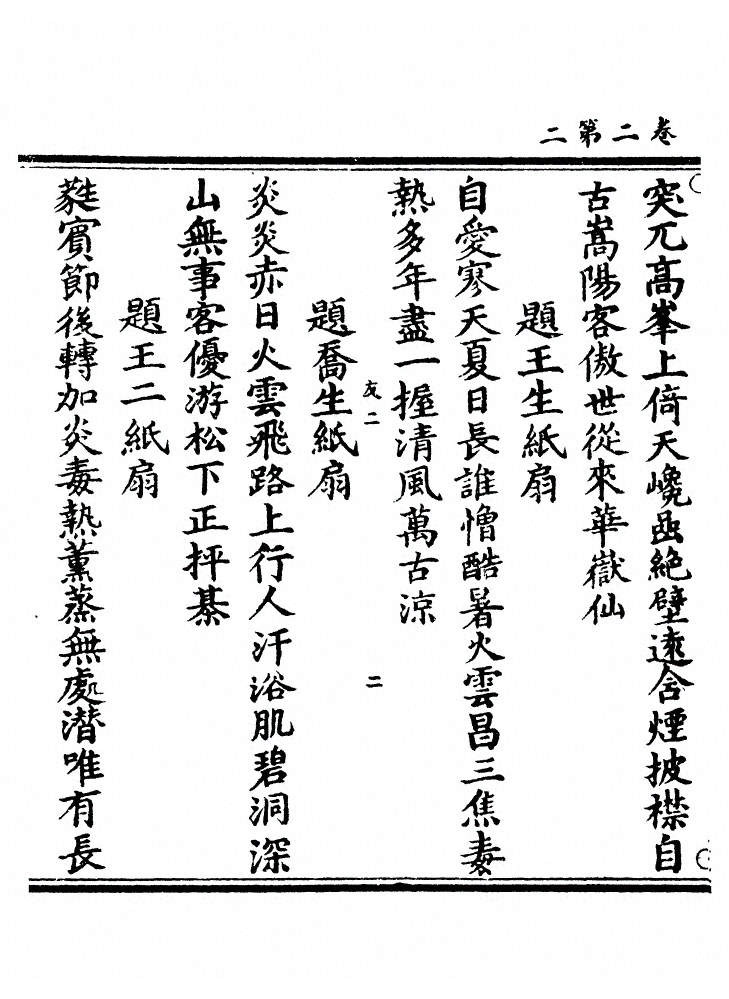 卷二第二
突兀高峯上倚天巉嵒絶壁遠含煙披襟自
古嵩陽客傲世從來華嶽仙
題王生紙扇
自愛寒天夏日長誰憎酷暑火雲昌三焦毒
熱多年盡一握清風萬古涼
友二
二
題喬生紙扇
炎炎赤日火雲飛路上行人汗浴肌碧洞深
山無事客優游松下正抨棊
題王二紙扇
蕤賓節後轉加炎毒熱薰蒸無處潛唯有長